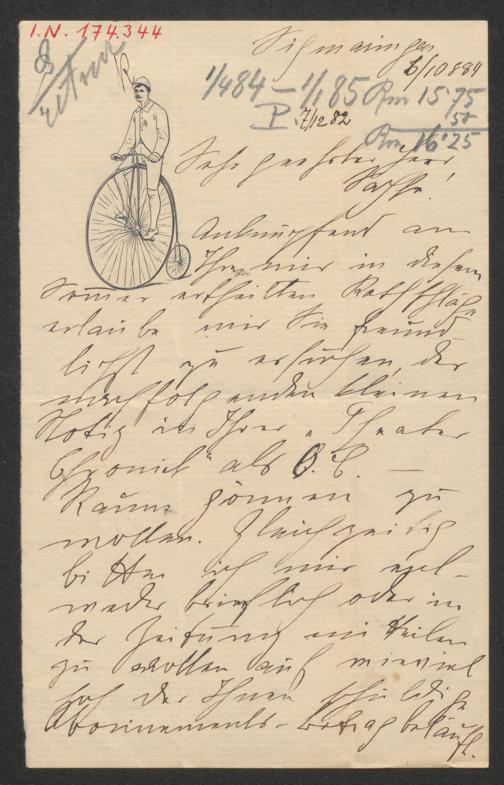 I.N. 174.344
Sigmaringen
6/10 884
1/4 84 – 1/1 85 Rm 15.75
7/12 82
50
Rm 16.25
Sehr geehrter Herr
Sachse!
Anknüpfend an
Ihre mir in diesem
Sommer ertheilten Rathschläge
erlaube mir Sie freund
lichst zu ersuchen, der
nachfolgenden kleinen
Notiz in Ihrer „Theater
Chronik" als O.C. —
Raum gönnen zu
wollen. Gleichzeitig
bitte ich mir ent-
weder brieflich oder in
der Zeitung mitteilen
zu wollen auf wieviel
sich der Ihnen schuldige
Abonnements-Betrag beläuft.